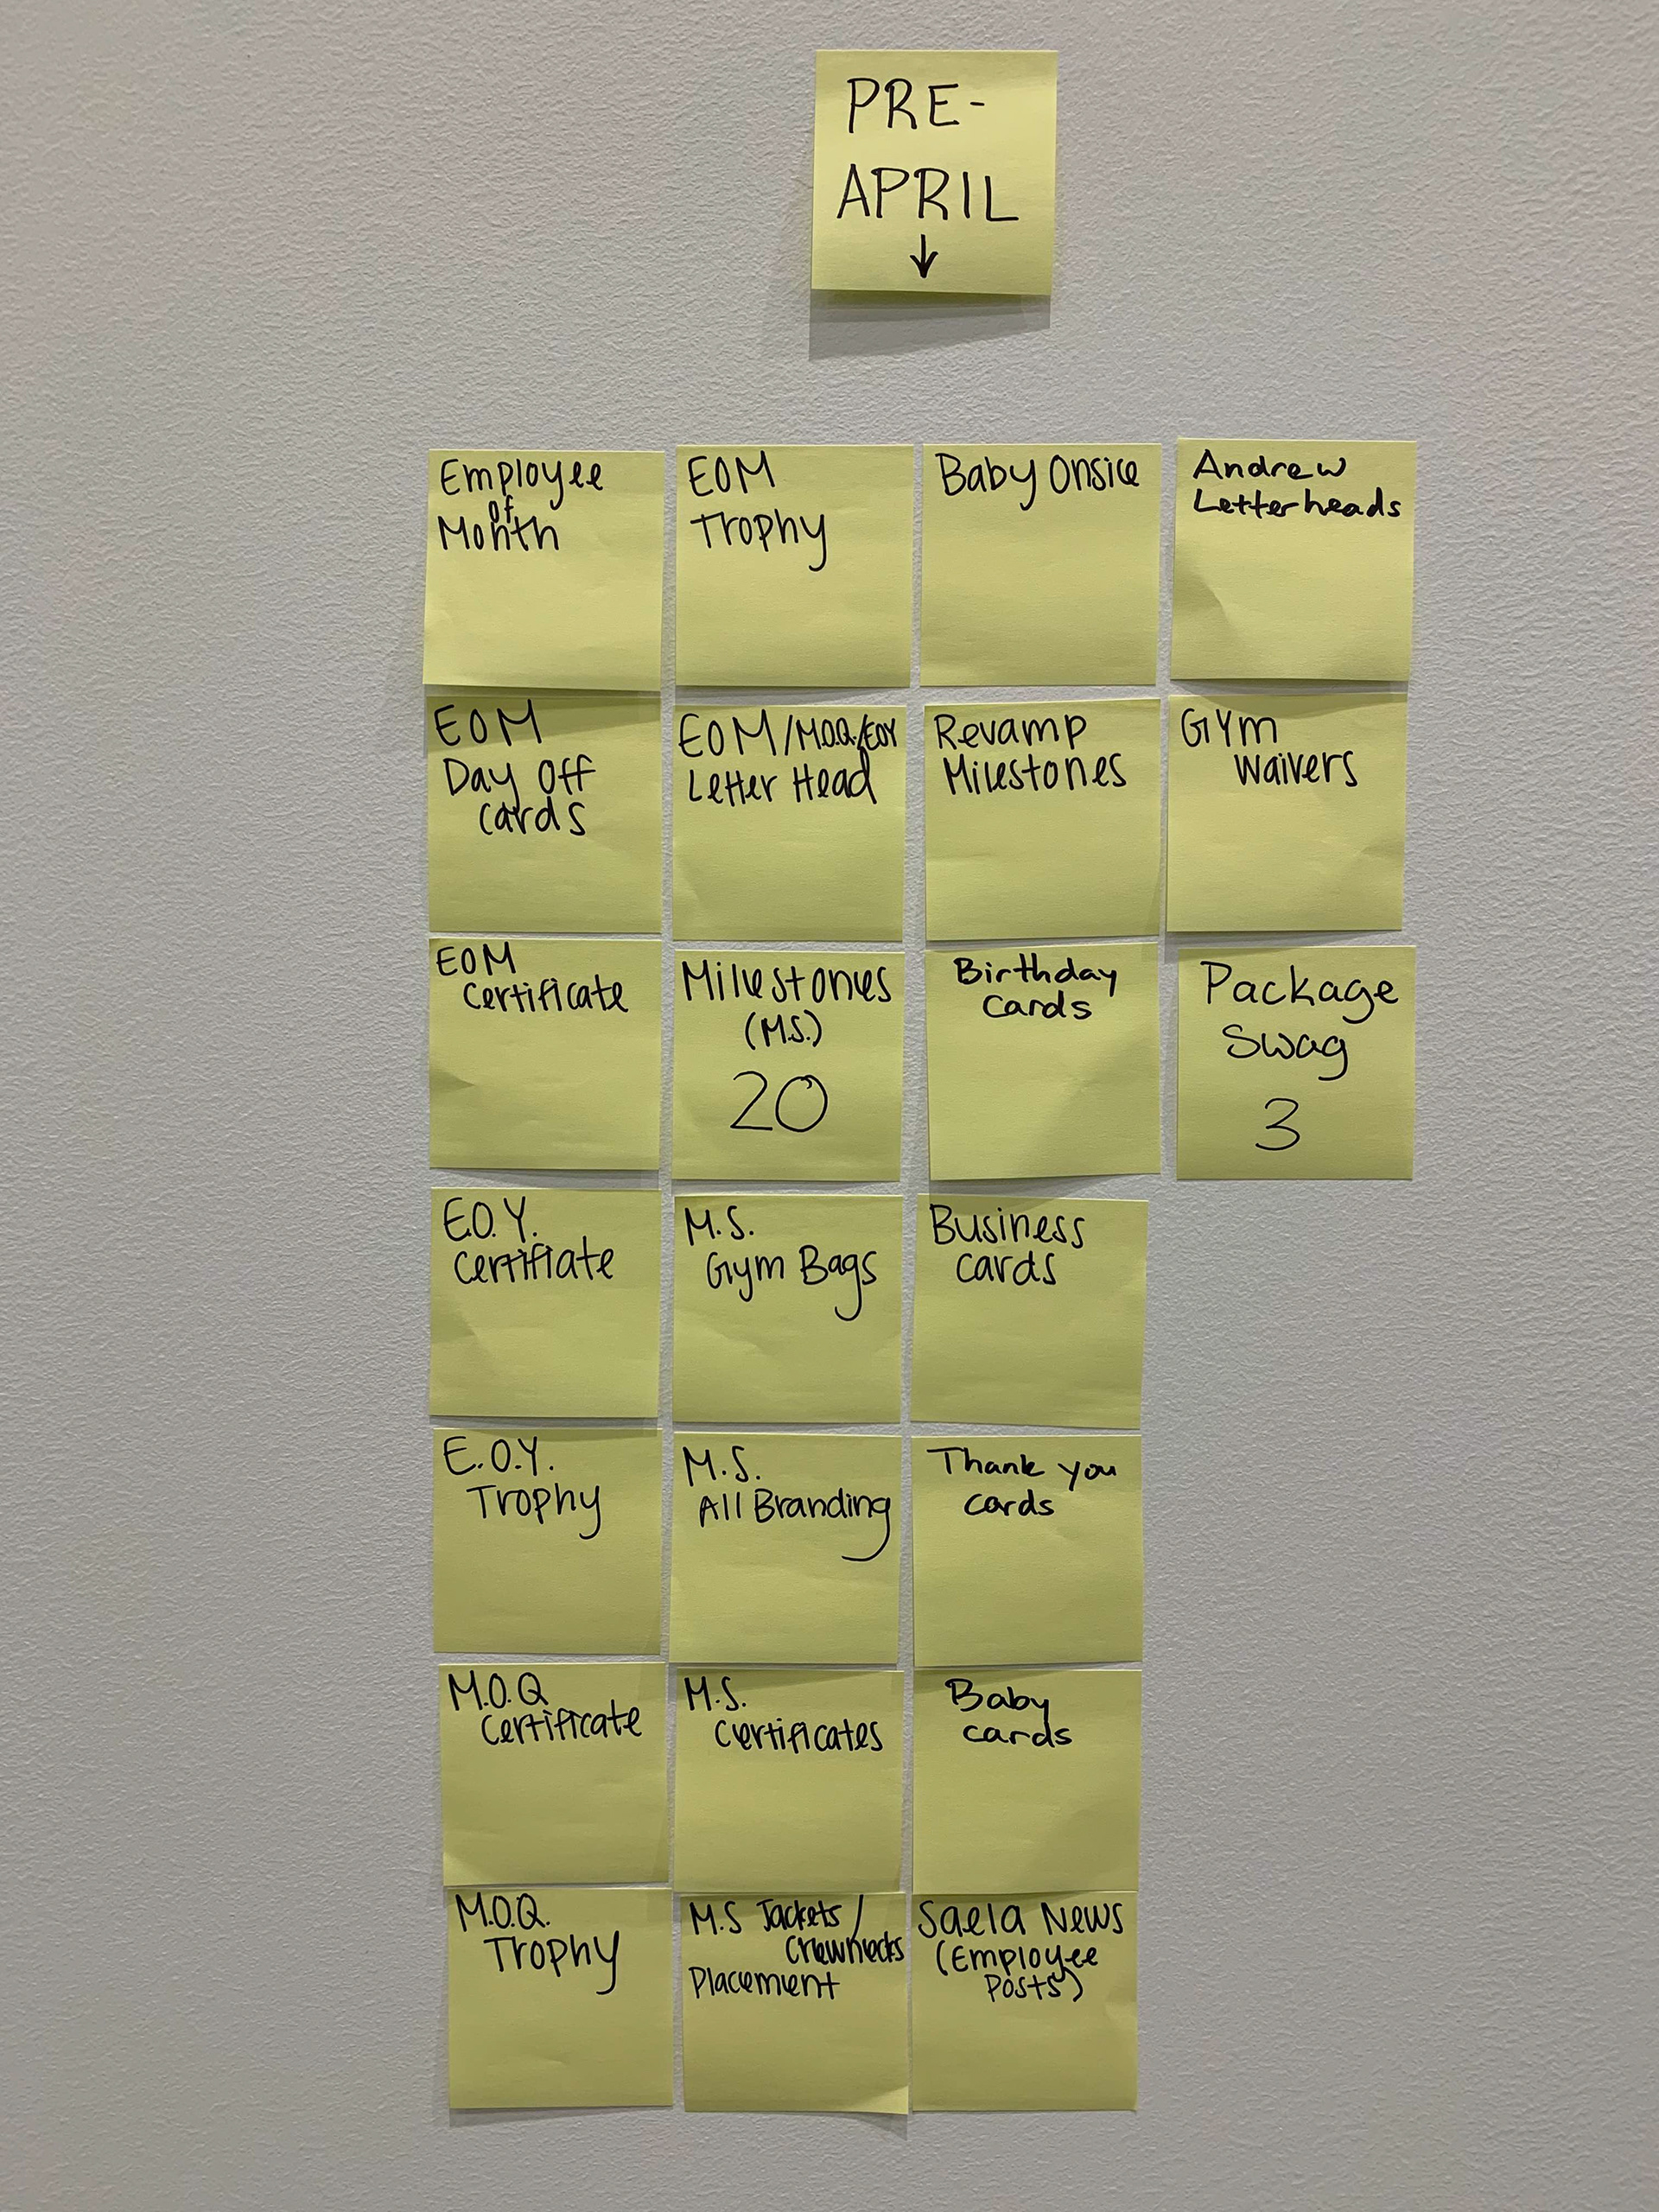 PRE-
APRIL
↓
Employee
of
Month
EOM
Trophy
Baby Onsie
Andrew
Letterheads
EOM
Day Off
Cards
EOM/M.O.Q./EOY
Letter Head
Revamp
Milestones
GYM
Waivers
EOM
Certificate
Milestones
(M.S.)
20
Birthday
Cards
Package
Swag
3
E.O.Y.
Certifiate
M.S.
Gym Bags
Business
Cards
E.O.Y.
Trophy
M.S.
All Branding
Thank you
cards
M.O.Q
Certificate
M.S.
Certificates
Baby
cards
M.O.Q.
Trophy
M.S Jackets/
Crewnecks
Placement
Saela News
(Employee
Posts)